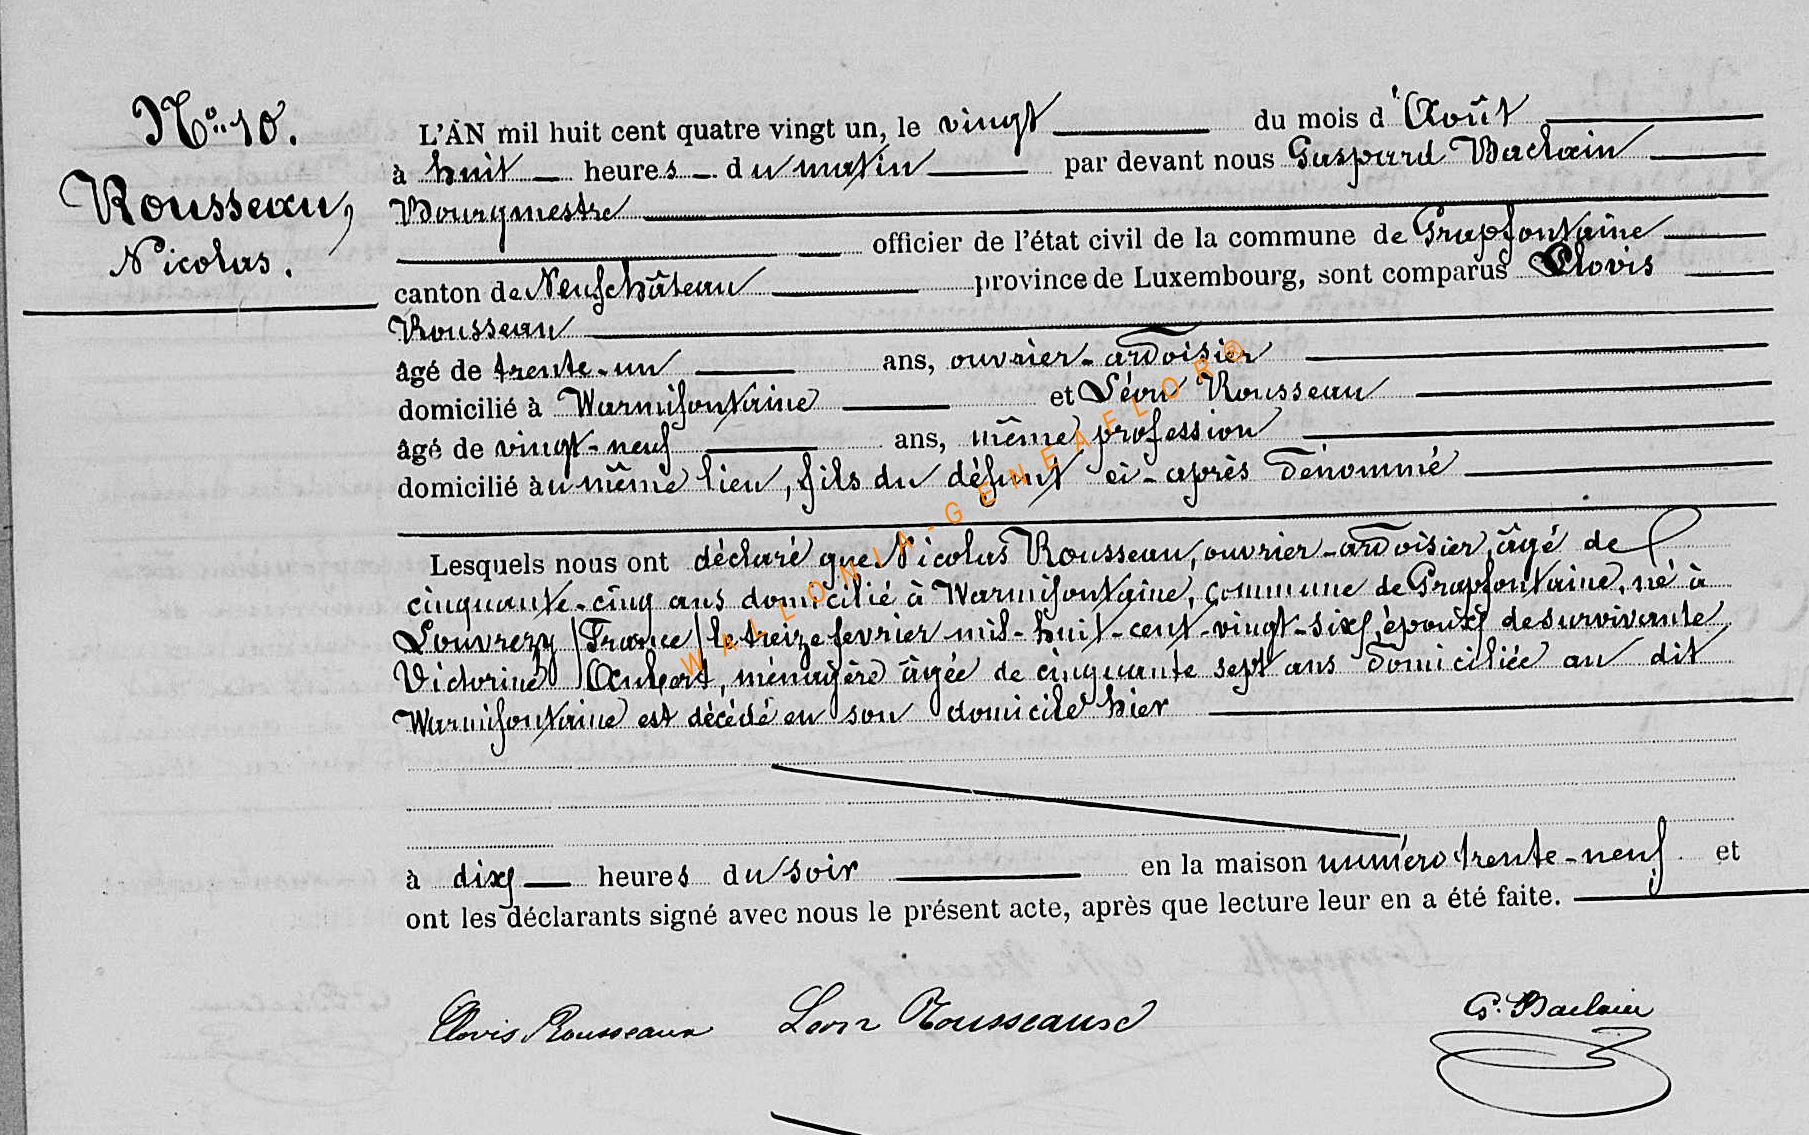 N° 10.
Rousseau,
Nicolas.
L'AN mil huit cent quatre vingt un, le vingt du mois d'Août
à huit heures du matin par devant nous Gaspard Baclain
Bourgmestre
officier de l'état civil de la commune de Grapfontaine
canton de Neufchâteau province de Luxembourg, sont comparus Clovis
Rousseau
âgé de trente-un ans, ouvrier-ardoisier
domicilié à Warmifontaine et Léon Rousseau
âgé de vingt-neuf ans, même profession
domicilié au même lieu, fils du défunt ci-après dénommé
Lesquels nous ont déclaré que Nicolas Rousseau, ouvrier-ardoisier, âgé de
cinquante-cinq ans domicilié à Warmifontaine, commune de Grapfontaine, né à
Louvrezy (France) le treize fevrier mil-huit-cent-vingt-six, époux de survivante
Victorine, ménagère âgée de cinquante sept ans domiciliée au dit
Warmifontaine est décédé en son domicile hier
à dix heures du soir en la maison numéro trente-neuf et
ont les déclarants signé avec nous le présent acte, après que lecture leur en a été faite.
Clovis Rousseaux Leon Rousseaux G. Baclain
WALLONIA-GENEAFLOR®